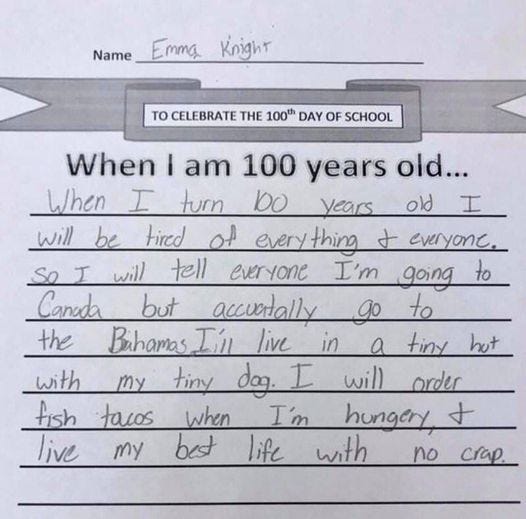 Name Emma Knight
TO CELEBRATE THE 100th DAY OF SCHOOL
When I am 100 years old...
When I turn 100 years old I
will be tired of everything & everyone.
so I will tell everyone I'm going to
Canada but accuertally go to
the Bahamas. I'ill live in a tiny hut
with my tiny dog. I will order
fish tacos when I'm hungery, &
live my best life with no crap.